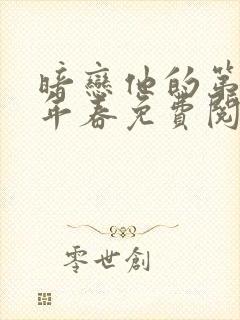 暗戀他的第
年春免費閱
零世創